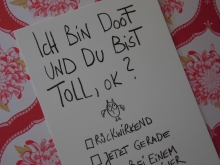 ICH BIN DOOF
UND DU BIST
TOLL, OK?
RÜCKWIRKEND
JETZT GERADE
BEI EINEM